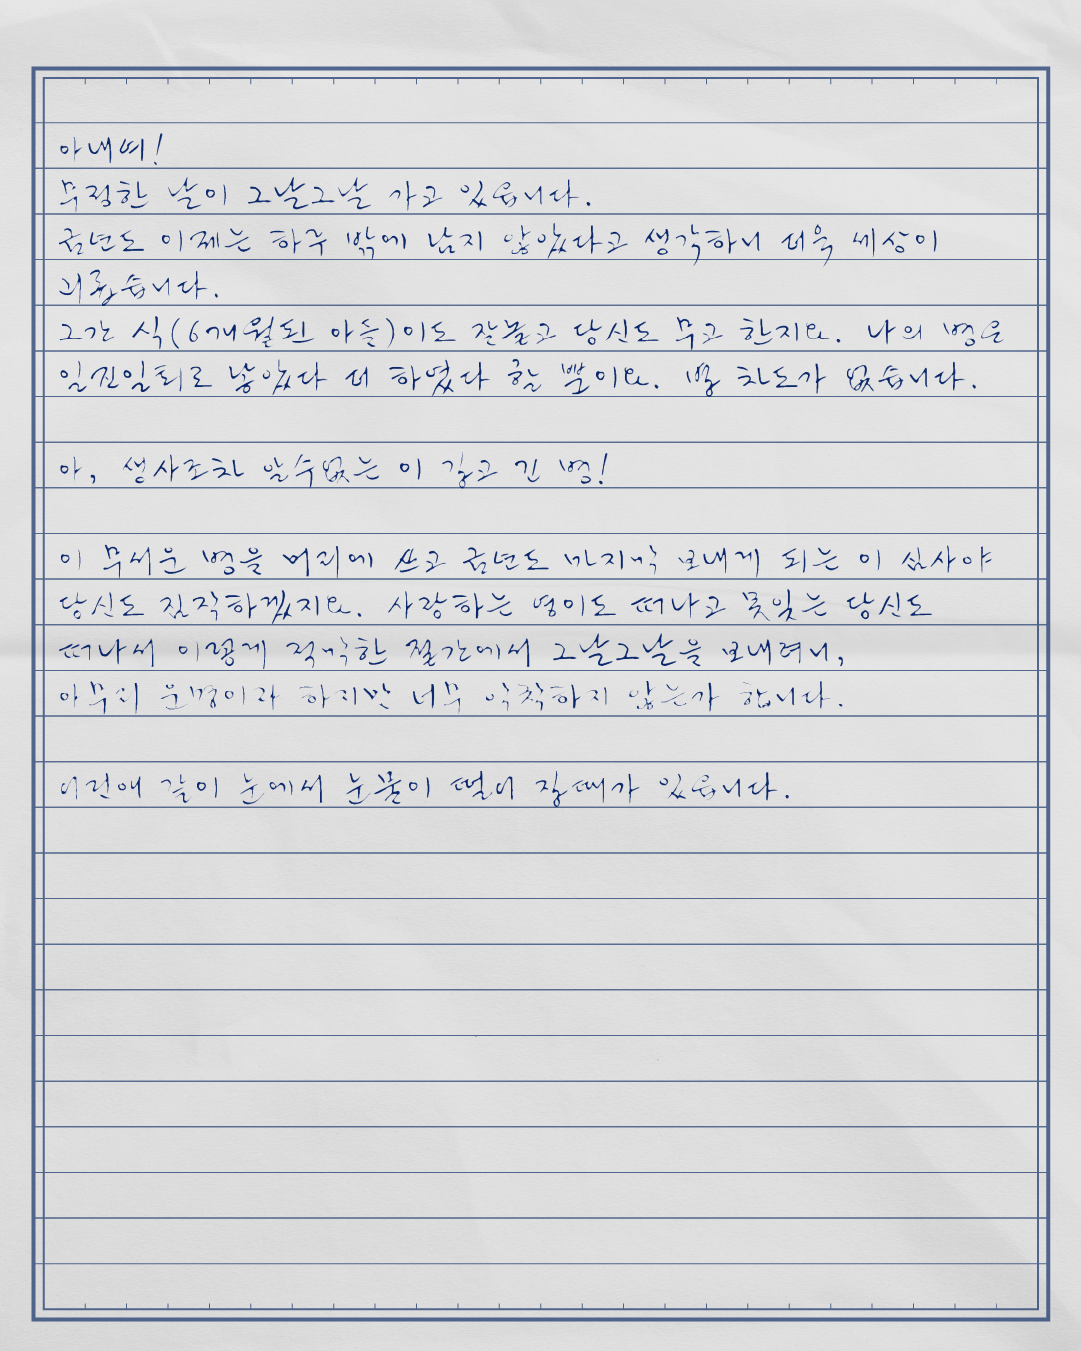 아내여!
무정한 날이 그날그날 가고 있읍니다.
금년도 이제는 하루 밖에 남지 않았다고 생각하니 더욱 세상이
괴롭습니다.
그간 식(6개월된 아들)이도 잘놀고 당신도 무고 한지요. 나의 병은
일진일퇴로 낳았다 더 하였다 할 뿐이요. 병 차도가 없습니다.
아, 생사조차 알수없는 이 깊고 긴 병!
이 무서운 병을 머리에 쓰고 금년도 마지막 보내게 되는 이 심사야
당신도 짐작하겠지요. 사랑하는 영이도 떠나고 못잊는 당신도
떠나서 이렇게 적막한 절간에서 그날그날을 보내려니,
아무리 운명이라 하지만 너무 악착하지 않는가 합니다.
어린애 같이 눈에서 눈물이 떨어 질때가 있읍니다.